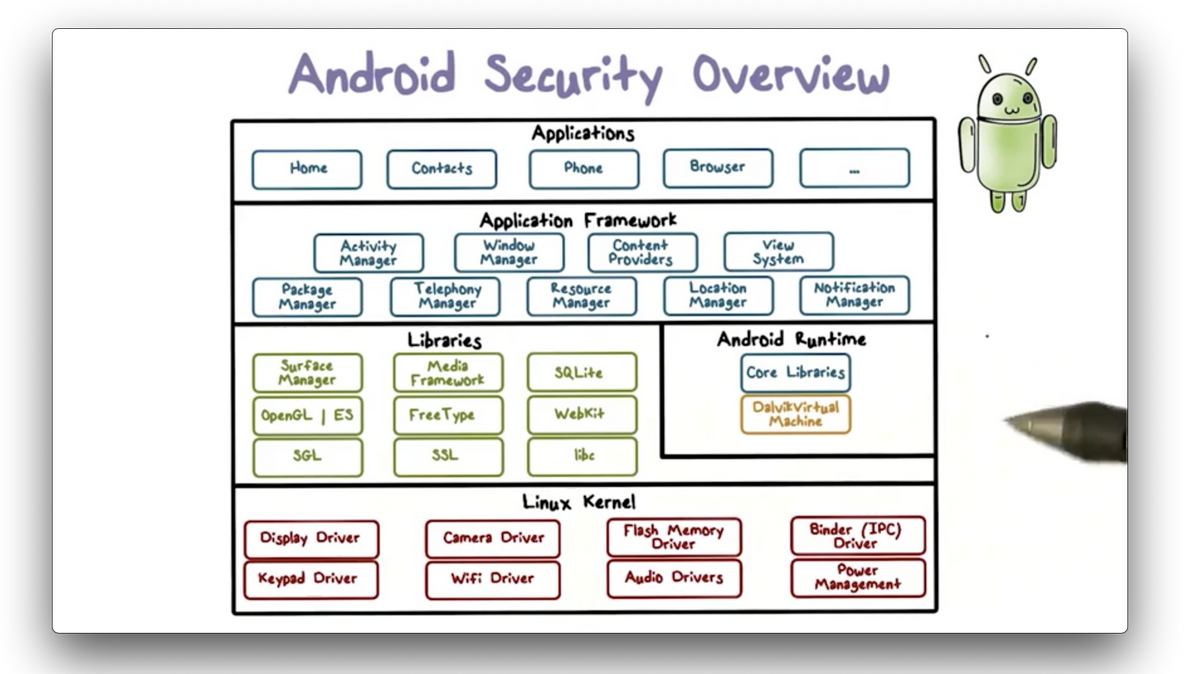 Android Security Overview
Applications
Home
Contacts
Phone
Browser
...
Application Framework
Activity
Manager
Window
Manager
Content
Providers
View
System
Package
Manager
Telephony
Manager
Resource
Manager
Location
Manager
Notification
Manager
Libraries
Surface
Manager
Media
Framework
SQLite
OpenGL | ES
FreeType
WebKit
SGL
SSL
libc
Android Runtime
Core Libraries
DalvikVirtual
Machine
Linux Kernel
Display Driver
Camera Driver
Flash Memory
Driver
Binder (IPC)
Driver
Keypad Driver
Wifi Driver
Audio Drivers
Power
Management